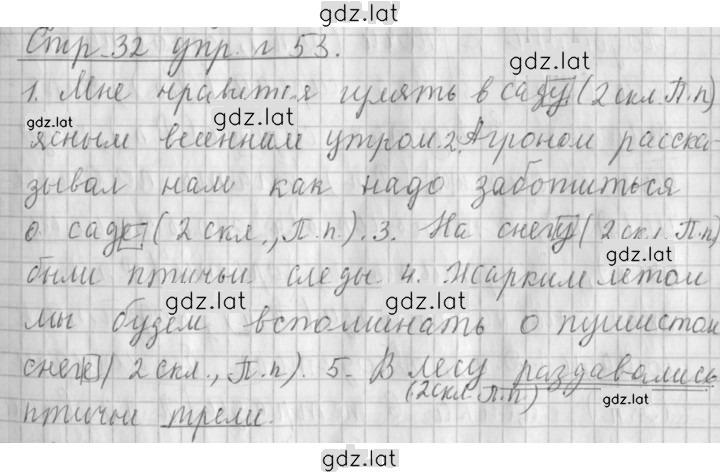 gdz.lat
Стр 32 упр. г 53.
gdz.lat
gdz.lat
1. Мне нравится гулять в саду (2 скл. П.п)
gdz.lat
gdz.lat
ясным весенним утром. 2. Агроном расска-
зывал нам как надо заботиться
gdz.lat
gdz.lat
о саде (2 скл., П.п.). 3. На снегу (2 скл. П.п)
были птичьи следы. 4. Жарким летом
gdz.lat
gdz.lat
мы будем вспоминать о пушистом
снеге (2 скл., П.п). 5. В лесу раздавались
gdz.lat
gdz.lat
(2 скл. П.п)
gdz.lat
птичьи трели.
gdz.lat